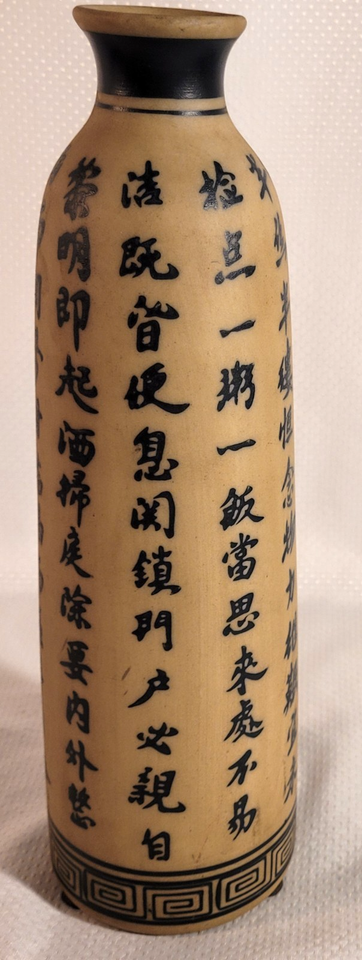 黎明即起洒掃庭除要内外整
洁既昏便息関鎖門户必親自
检点一粥一飯當思來處不易
半縷恒念物力